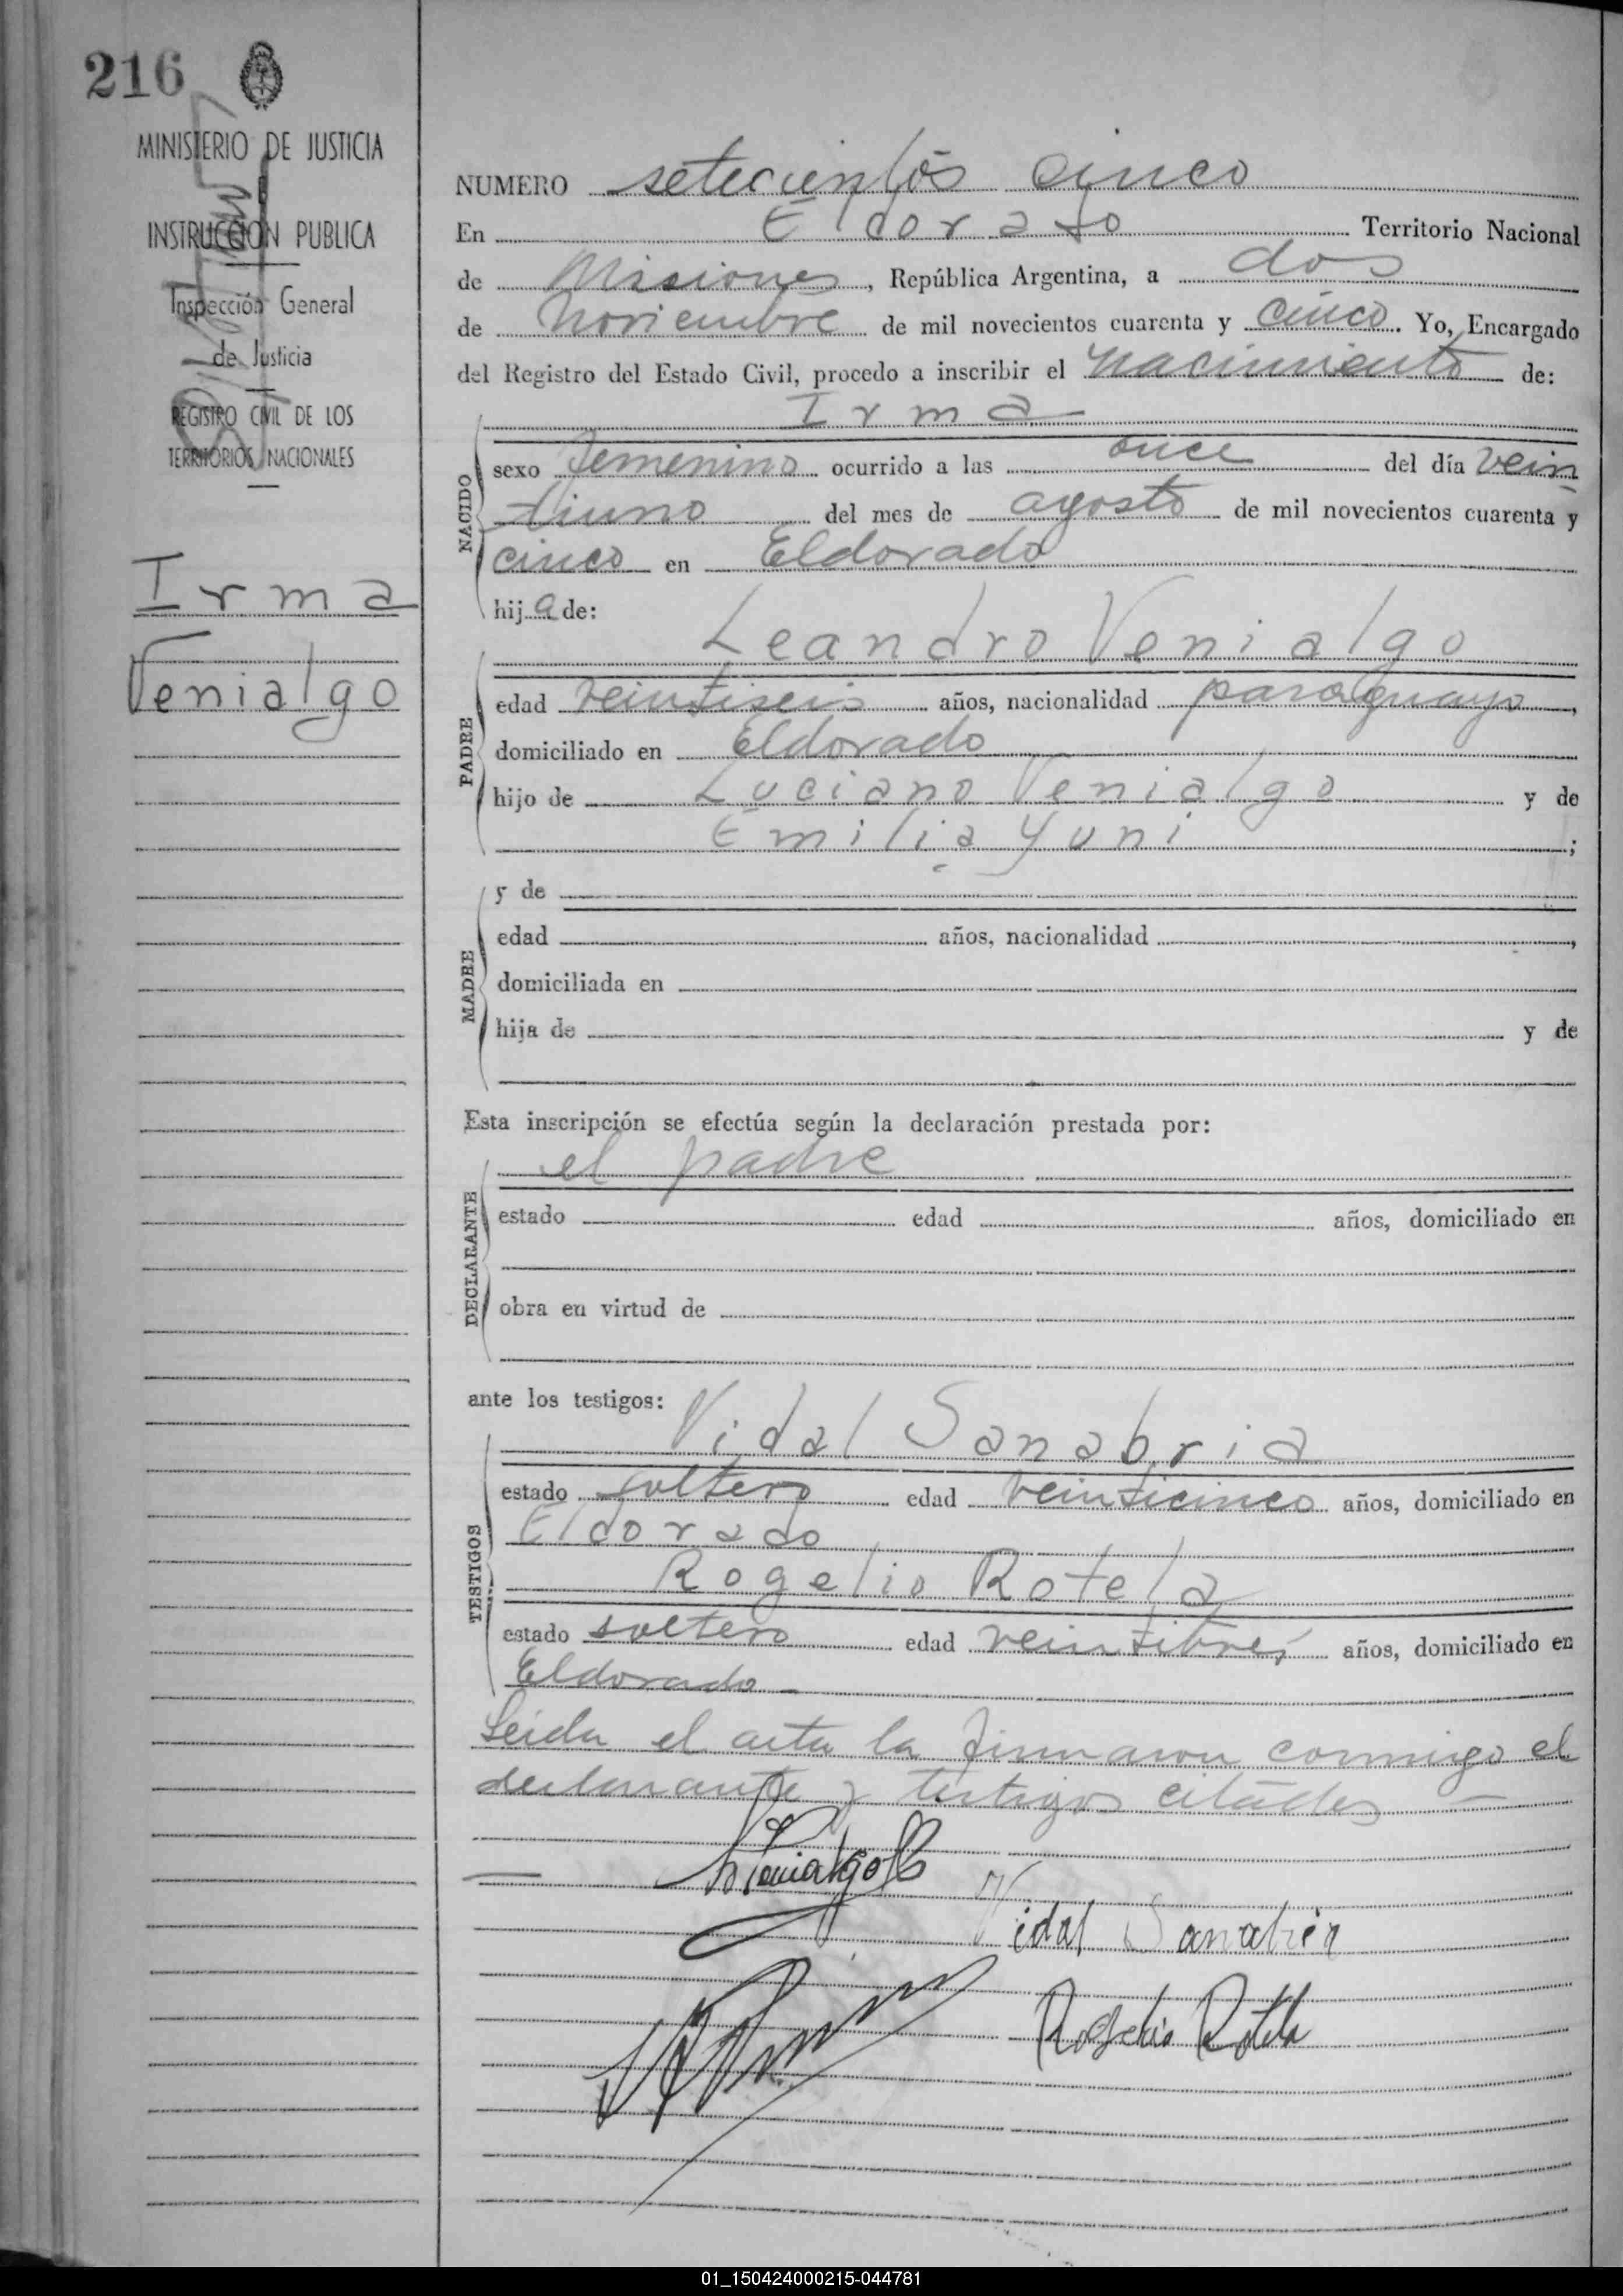 216
MINISTERIO DE JUSTICIA
INSTRUCCION PUBLICA
Inspección General
de Justicia
REGISTRO CIVIL DE LOS
TERRITORIOS NACIONALES
Irma
Venialgo
NUMERO setecientos cinco
En Eldorado Territorio Nacional
de Misiones, República Argentina, a dos
de Noviembre de mil novecientos cuarenta y cinco. Yo, Encargado
del Registro del Estado Civil, procedo a inscribir el nacimiento de:
Irma
NACIDO
sexo femenino ocurrido a las once del día vein
tiuno del mes de agosto de mil novecientos cuarenta y
cinco en Eldorado
hija de:
Leandro Venialgo
PADRE
edad veintiseis años, nacionalidad paraguayo,
domiciliado en Eldorado
hijo de Luciano Venialgo y de
Emilia Yuni;
MADRE
y de
edad años, nacionalidad ,
domiciliada en
hija de y de
Esta inscripción se efectúa según la declaración prestada por:
el padre
DECLARANTE
estado edad años, domiciliado en
obra en virtud de
ante los testigos:
Vidal Sanabria
TESTIGOS
estado soltero edad veinticinco años, domiciliado en
Eldorado
Rogelio Rotela
estado soltero edad veintitres años, domiciliado en
Eldorado -
Leida el acta la firmaron conmigo el
declarante y testigos citados —
Venialgo
Vidal Sanabria
Rogelio Rotela
01_150424000215-044781